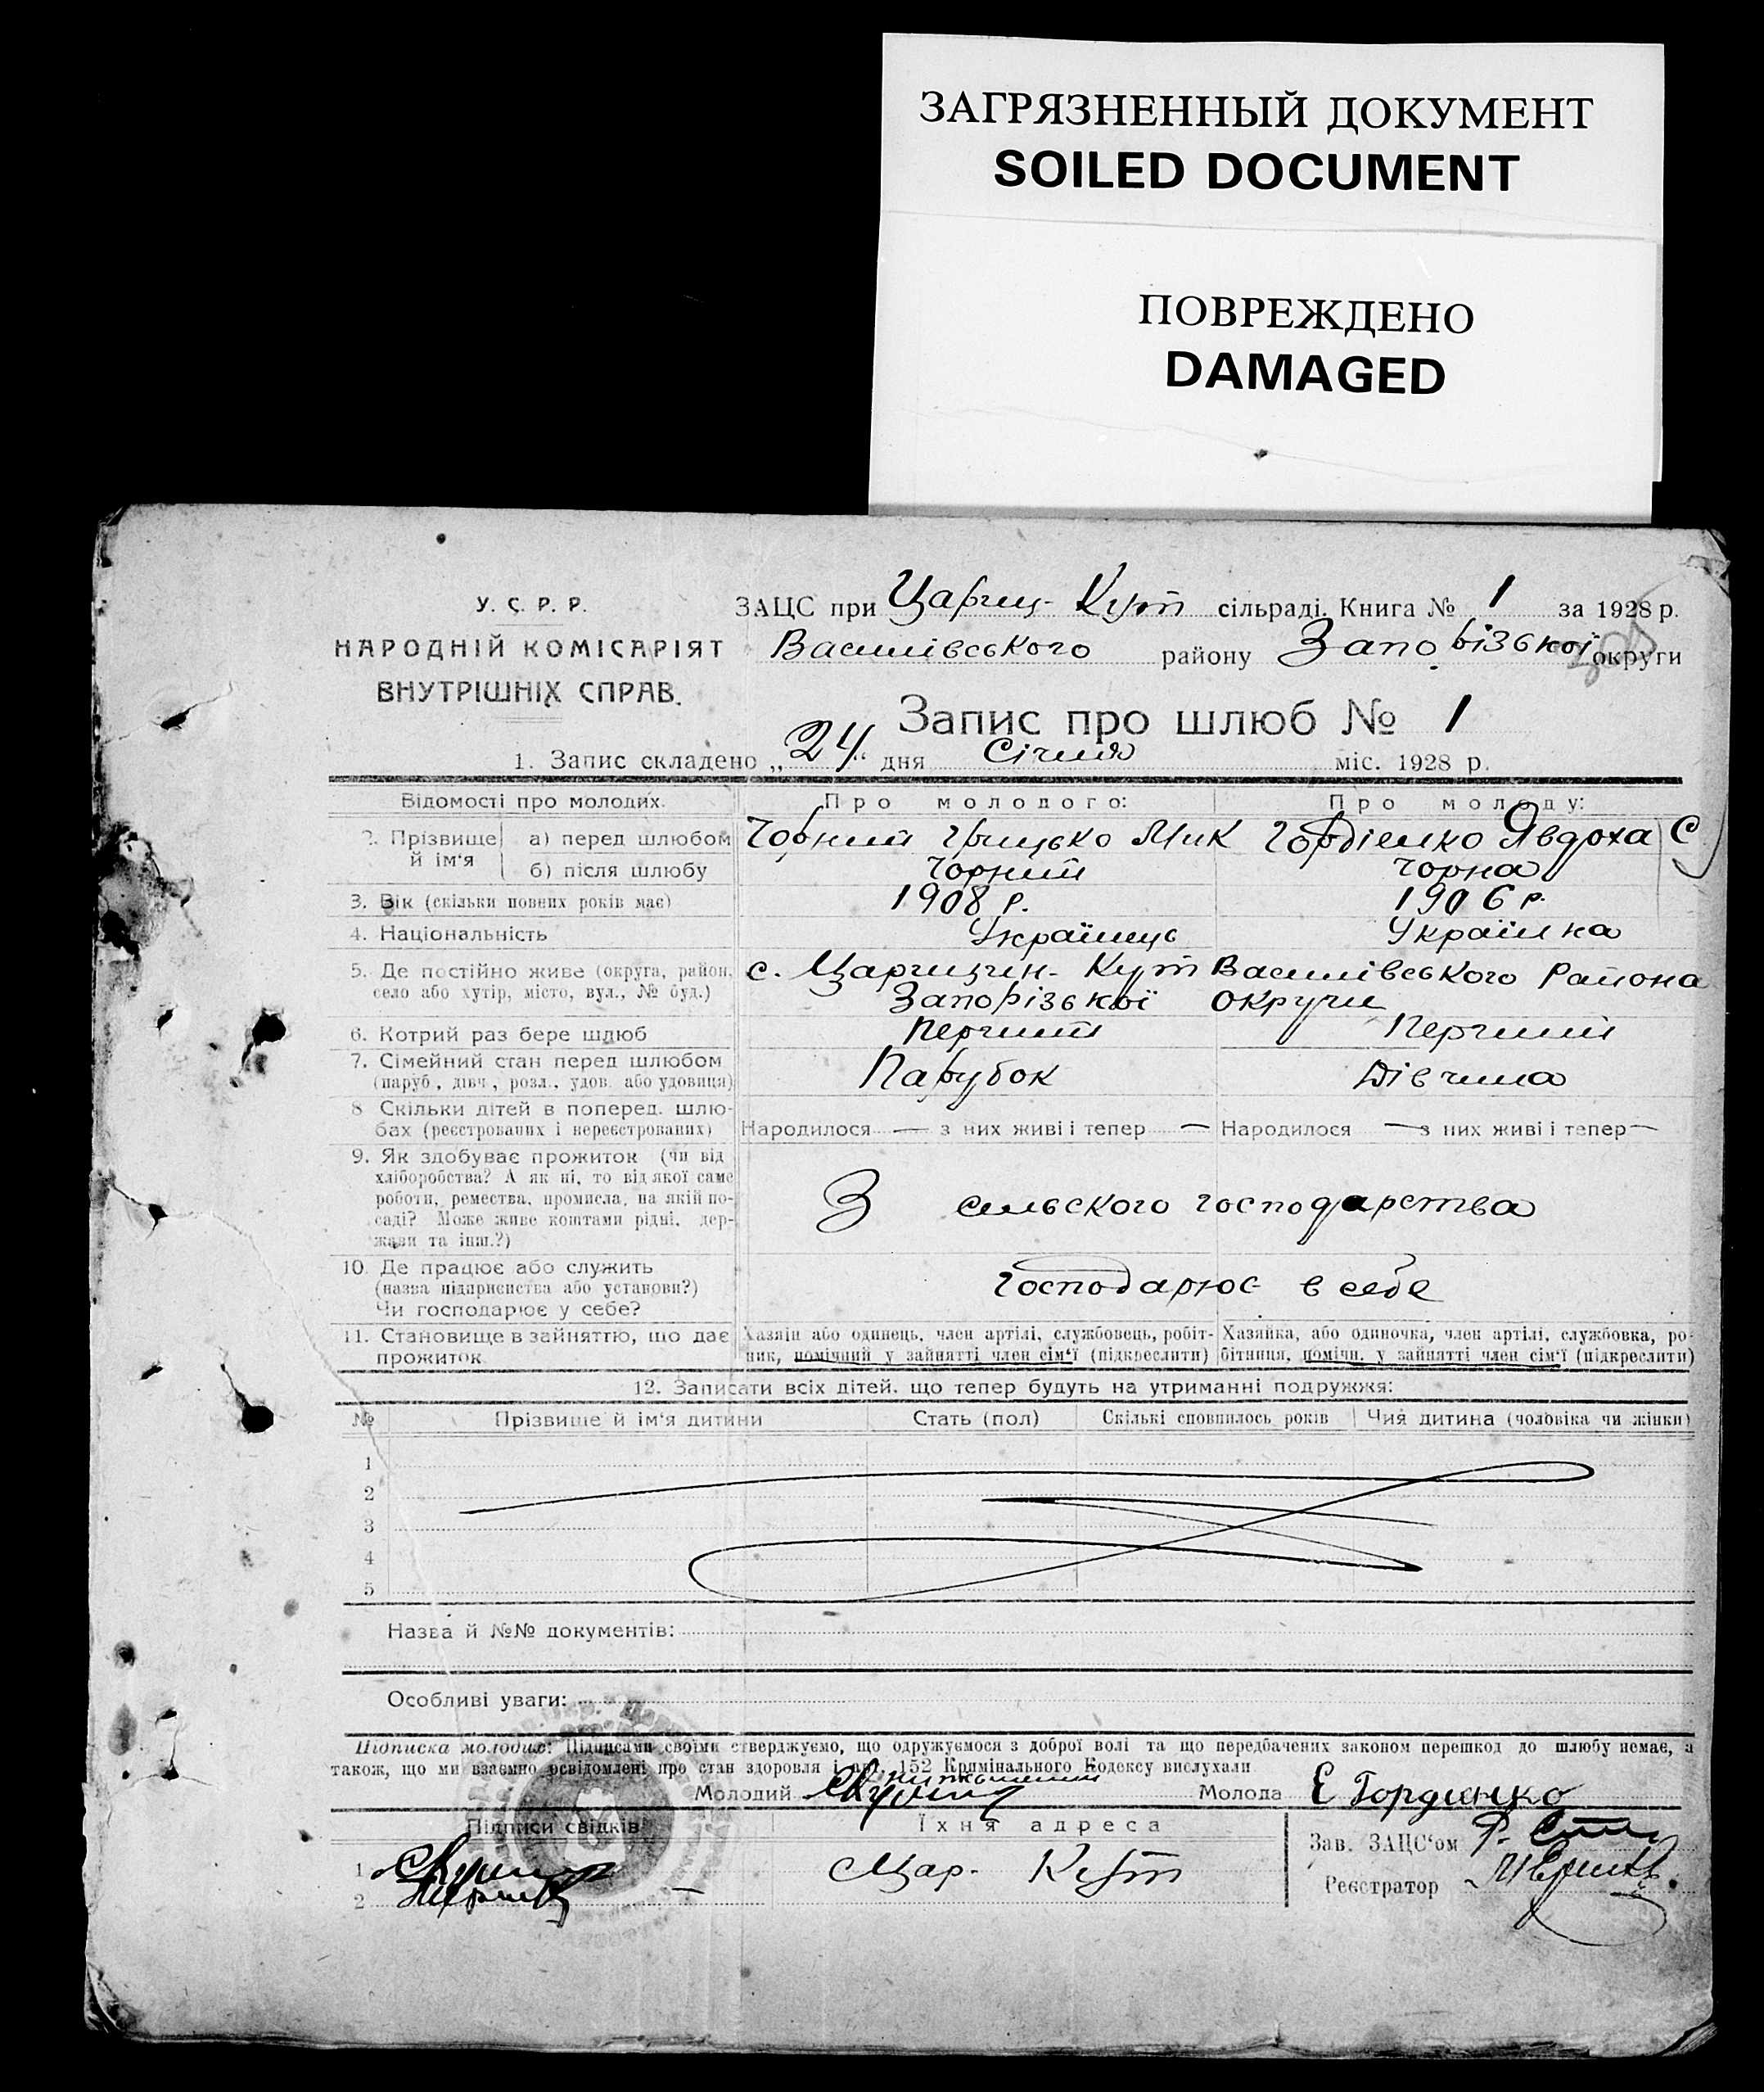 ЗАГРЯЗНЕННЫЙ ДОКУМЕНТ
SOILED DOCUMENT
ПОВРЕЖДЕНО
DAMAGED
У. С. Р. Р.
НАРОДНІЙ КОМІСАРІЯТ
ВНУТРІШНІХ СПРАВ.
ЗАЦС при Цариц- Кут сільраді. Книга № 1 за 1928 р.
Василівського району Запорізької округи
Запис про шлюб № 1
1. Запис складено „24“ дня Січня міс. 1928 р.
Відомості про молодих. Про молодого: Про молоду:
2. Прізвище й ім‘я
а) перед шлюбом Чорний Грицько Мик Гордієнко Явдоха С
б) після шлюбу Чорний Чорна
3. Вік (скільки повних років має) 1908 р. 1906 р.
4. Національність Українець Українка
5. Де постійно живе (округа, район, с. Царицин- Кут Василівського Района
село або хутір, місто, вул., № буд.) Запорізької округи
6. Котрий раз бере шлюб Перший Перший
7. Сімейний стан перед шлюбом
(паруб., дівч., розл., удов. або удовиця) Парубок Дівчина
8 Скільки дітей в поперед. шлю-
бах (реєстрованих і нереєстрованих) Народилося — з них живі і тепер — Народилося — з них живі і тепер —
9. Як здобуває прожиток (чи від
хліборобства? А як ні, то від якої саме
роботи, ремества, промисла, на якій по- З сільського господарства
саді? Може живе коштами рідні, дер-
жави та інш.?)
10. Де працює або служить
(назва підприємства або установи?) Господарює в себе
Чи господарює у себе?
11. Становище в зайняттю, що дає Хазяїн або одинець, член артілі, службовець, робіт- Хазяйка, або одиночка, член артілі, службовка, ро-
прожиток ник, помічний у зайнятті член сім‘ї (підкреслити) бітниця, помічн. у зайнятті член сім‘ї (підкреслити)
12. Записати всіх дітей, що тепер будуть на утриманні подружжя:
№ Прізвище й ім‘я дитини Стать (пол) Скількі сповнилось років Чия дитина (чоловіка чи жінки)
1
2
3
4
5
Назва й №№ документів:
Особливі уваги:
Підписка молодих: Підписами своїми стверджуємо, що одружуємося з доброї волі та що передбачених законом перешкод до шлюбу немає, а
також, що ми взаємно освідомлені про стан здоровля і арт. 152 Кримінального Кодексу вислухали
Молодий Молода Е Гордиенко
Підписи свідків Їхня адреса
Зав. ЗАЦС‘ом
1 Цар. Кут
Реєстратор
2 —